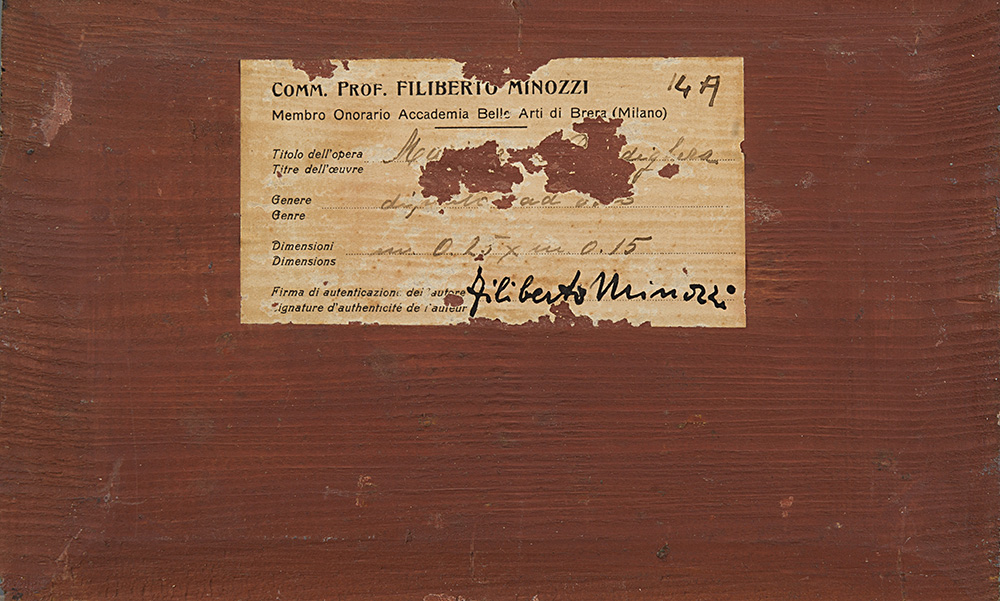 COMM. PROF. FILIBERTO MINOZZI
14 A
Membro Onorario Accademia Belle Arti di Brera (Milano)
Titolo dell'opera
Titre dell'œuvre
Genere ad
Genre
Dimensioni m. 0.25 x m 0.15
Dimensions
Firma di autenticazione dell'autore Filiberto Minozzi
Signature d'authenticité de l'auteur